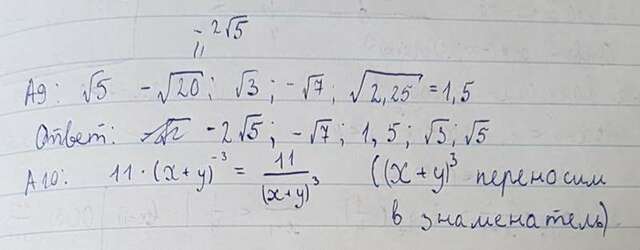 -2√5
||
A9: √5 -√20; √3; -√7; √2,25 = 1,5
Ответ: -2√5; -√7; 1,5; √3; √5
A10: 11·(x+y)⁻³ = 11/(x+y)³ ((x+y)³ переносим
в знаменатель)